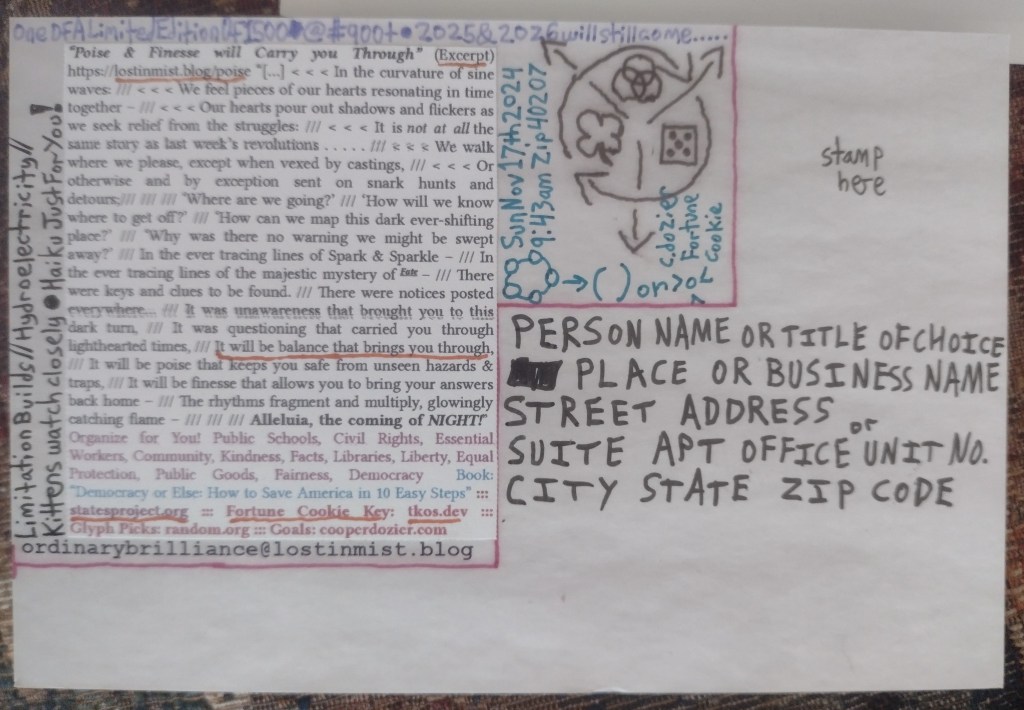 One OFA Limited Edition (4 1500 @ #900+ • 2025 & 2026 will still come.....
"Poise & Finesse will Carry you Through" (Excerpt)
https://lostinmist.blog/poise "[...] < < < In the curvature of sine
waves: /// < < < We feel pieces of our hearts resonating in time
together – /// < < < Our hearts pour out shadows and flickers as
we seek relief from the struggles: /// < < < It is not at all the
same story as last week's revolutions . . . . . /// < < < We walk
where we please, except when vexed by castings, /// < < < Or
otherwise and by exception sent on snark hunts and
detours;/// /// /// 'Where are we going?' /// 'How will we know
where to get off?' /// 'How can we map this dark ever-shifting
place?' /// 'Why was there no warning we might be swept
away?' /// In the ever tracing lines of Spark & Sparkle – /// In
the ever tracing lines of the majestic mystery of Fate – /// There
were keys and clues to be found. /// There were notices posted
everywhere... /// It was unawareness that brought you to this
dark turn, /// It was questioning that carried you through
lighthearted times, /// It will be balance that brings you through,
/// It will be poise that keeps you safe from unseen hazards &
traps, /// It will be finesse that allows you to bring your answers
back home – /// The rhythms fragment and multiply, glowingly
catching flame – /// /// /// Alleluia, the coming of NIGHT!"
Organize for You! Public Schools, Civil Rights, Essential
Workers, Community, Kindness, Facts, Libraries, Liberty, Equal
Protection, Public Goods, Fairness, Democracy Book:
"Democracy or Else: How to Save America in 10 Easy Steps" :::
statesproject.org ::: Fortune Cookie Key: tkos.dev :::
Glyph Picks: random.org ::: Goals: cooperdozier.com
ordinarybrilliance@lostinmist.blog
Limitation Builds // Hydroelectricity //
Kittens watch closely • Haiku Just For You!
Sun Nov 17th 2024
9:43am Zip 40207
→ ( ) or > o <
c.dozier
Fortune
Cookie
stamp
here
PERSON NAME OR TITLE OF CHOICE
PLACE OR BUSINESS NAME
STREET ADDRESS or
SUITE APT OFFICE UNIT NO.
CITY STATE ZIP CODE